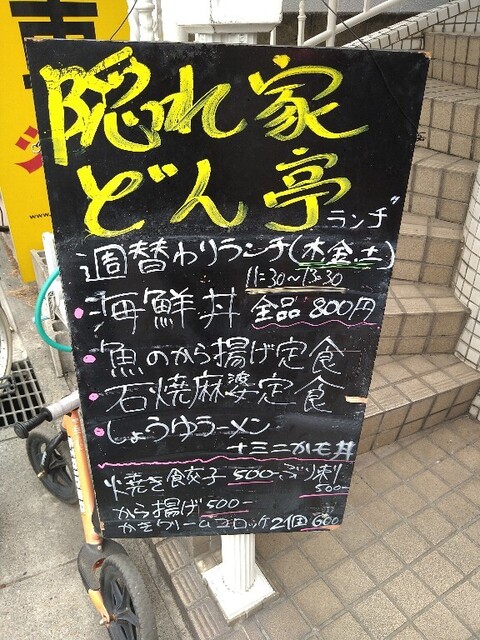 隠れ家
どん亭
ランチ
週替わりランチ(木金土)
11:30~13:30
海鮮丼 全品 800円
魚のから揚げ定食
石焼麻婆定食
しょうゆラーメン
+ミニかも丼
焼き餃子 500- ぶり刺 500-
から揚げ 500-
かきクリームコロッケ2個 600
www.